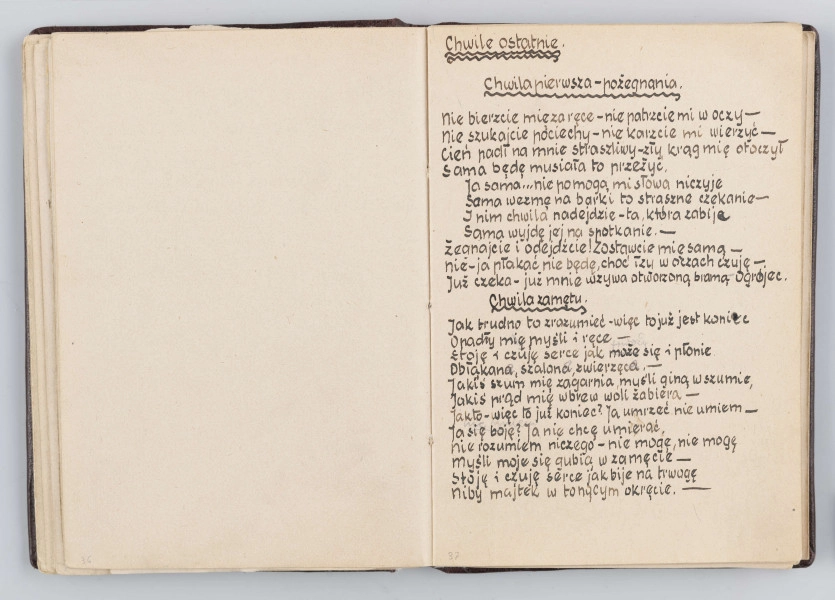 Chwile ostatnie.
Chwila pierwsza – pożegnania.
Nie bierzcie mię za ręce – nie patrzcie mi w oczy —
Nie szukajcie pociechy – nie karzcie mi wierzyć —
Cień padł na mnie straszliwy – zły krąg mię otoczył
Sama będę musiała to przeżyć.
Ja sama... nie pomogą mi słowa niczyje
Sama wezmę na barki to straszne czekanie —
I nim chwila nadejdzie – ta, która zabije
Sama wyjdę jej na spotkanie. —
Żegnajcie i odejdźcie! Zostawcie mię samą —
nie – ja płakać nie będę, choć łzy w oczach czuję —
Już czeka – już mnie wzywa otworzoną bramą Ogrójec.
Chwila zamętu.
Jak trudno to zrozumieć – więc to już jest koniec
Opadły mię myśli i ręce —
Stoję i czuję serce jak może się i płonie
Obłąkana, szalona, zwierzęca. —
Jakiś szum mię zagarnia, myśli giną w szumie,
Jakiś prąd mię wbrew woli zabiera —
Jakto – więc to już koniec? Ja umrzeć nie umiem —
Ja się boję? Ja nie chcę umierać,
nie rozumiem niczego – nie mogę, nie mogę
Myśli moje się gubią w zamęcie —
Stoję i czuję serce jak bije na trwogę
Niby majtek w tonącym okręcie. —
36
37